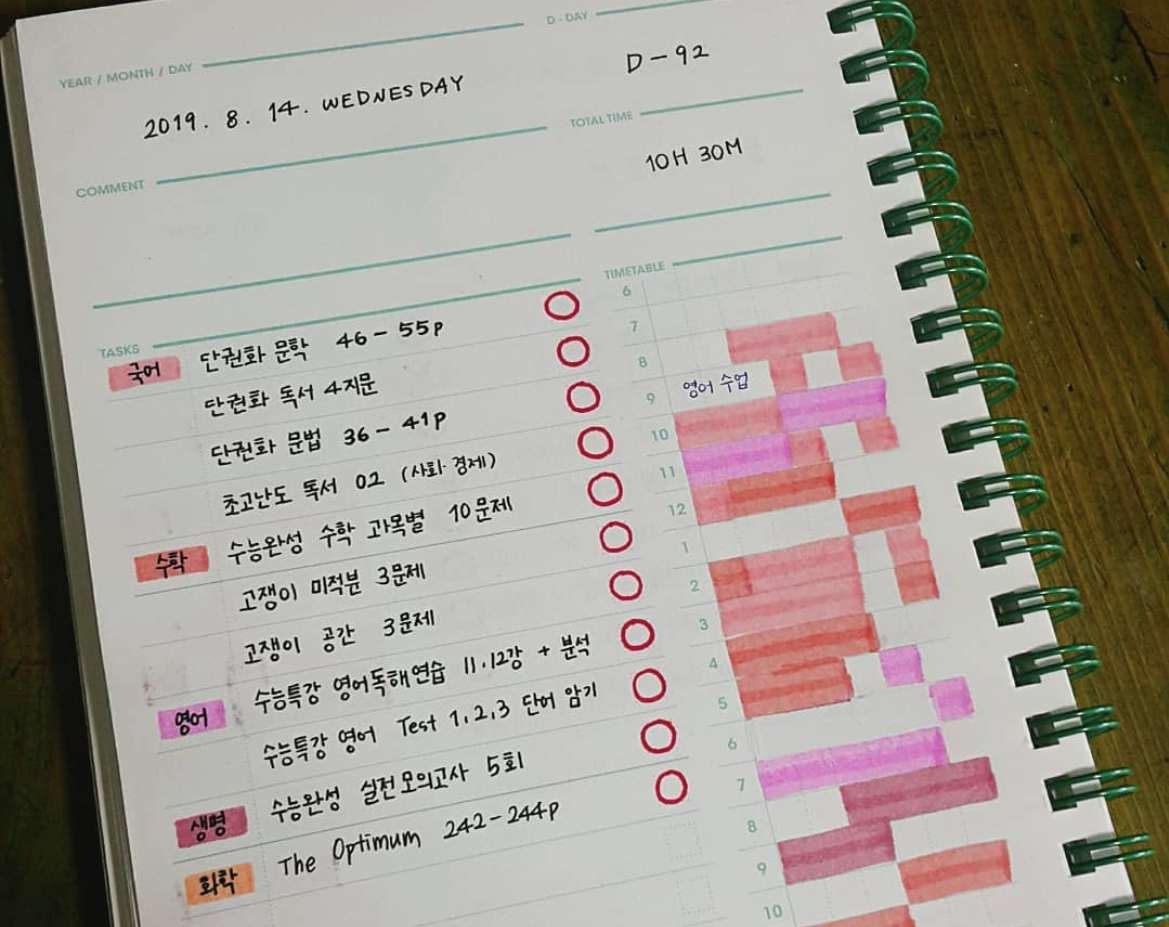 D - DAY
YEAR / MONTH / DAY
D-92
2019. 8. 14. WEDNESDAY
TOTAL TIME
10H 30M
COMMENT
TIMETABLE
TASKS
국어 단권화 문학 46 - 55p
단권화 독서 4지문
단권화 문법 36 - 41p
초고난도 독서 02 (사회·경제)
수학 수능완성 수학 과목별 10문제
고쟁이 미적분 3문제
고쟁이 공간 3문제
영어 수능특강 영어독해연습 11.12강 + 분석
수능특강 영어 Test 1,2,3 단어 암기
생명 수능완성 실전모의고사 5회
화학 The Optimum 242-244p
6
7
8
영어 수업
9
10
11
12
1
2
3
4
5
6
7
8
9
10